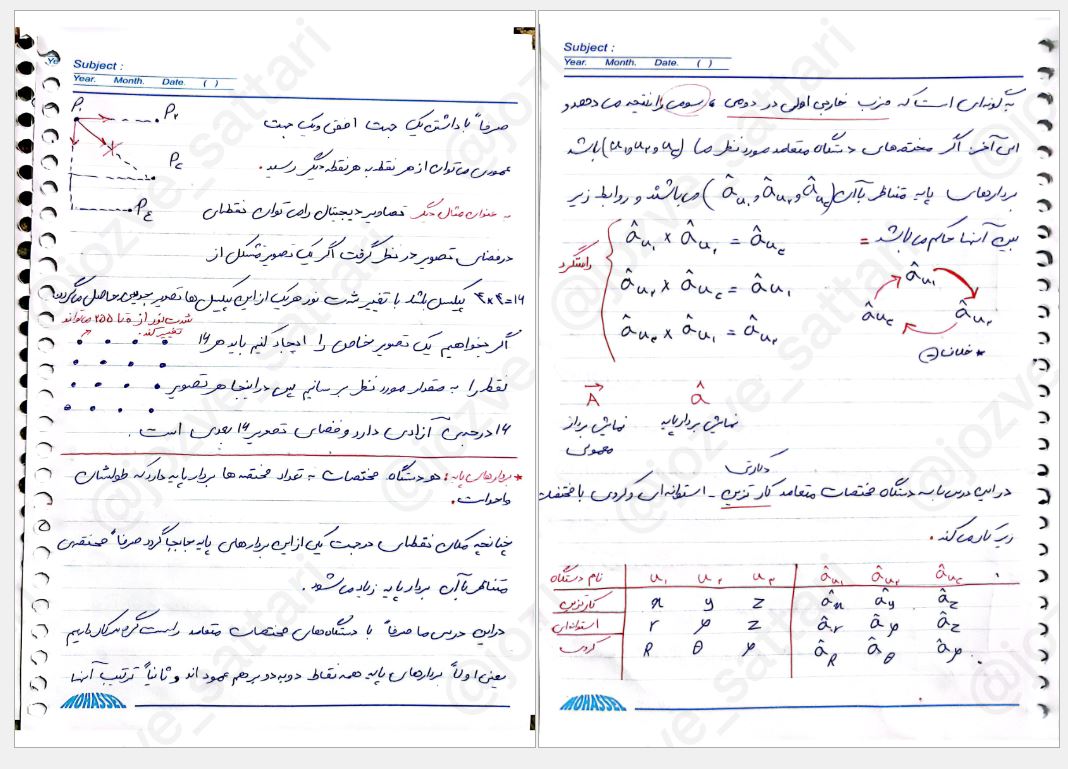 Subject :
Year. Month. Date. ( )
P₁ P₂
صرفاً با داشتن یک جهت افقی و یک جهت
P₃
عمودی می‌توان از هر نقطه به هر نقطه دیگر رسید.
P₄
به عنوان مثال دیگر تصاویر دیجیتال را می‌توان نقطه‌ای
در فضای تصویر در نظر گرفت اگر یک تصویر متشکل از
۴×۴=۱۶ پیکسل باشد با تغییر شدت نور هریک از این پیکسل‌ها تصویر جدیدی حاصل می‌گردد
شدت نور از ۰ تا ۲۵۵ می‌تواند
تغییر کند.
اگر بخواهیم یک تصویر خاص را ایجاد کنیم باید هر ۱۶
نقطه را به مقدار مورد نظر برسانیم پس در اینجا هر تصویر
۱۶ درجه‌ی آزادی دارد و فضای تصویر ۱۶ بعدی است.
* بردارهای پایه: هر دستگاه مختصات به تعداد مختصه‌ها بردار پایه دارد که طولشان
واحد است.
چنانچه مکان نقطه‌ای در جهت یکی از این بردارهای پایه جابجا گردد صرفاً مختصه‌ی
متناظر با آن بردار پایه زیاد می‌شود.
در این درس ما صرفاً با دستگاه‌های مختصات متعامد راست گرد سر کار داریم
یعنی اولاً بردارهای پایه همه نقاط دو به دو بر هم عمود اند و ثانیاً ترتیب آنها
MOHASSEL
Subject :
Year. Month. Date. ( )
به گونه‌ای است که ضرب خارجی اولی در دومی، سومی را نتیجه می دهد و
این آخر: اگر مختصه‌های دستگاه متعامد مورد نظر ما (u₁ و u₂ و u₃) باشد
بردارهای پایه متناظر با آن (âu₁ و âu₂ و âu₃) می‌باشند و روابط زیر
بین آنها حاکم می‌باشد =
راستگرد
âu₁ × âu₂ = âu₃
âu₂ × âu₃ = âu₁
âu₃ × âu₁ = âu₂
âu₁
âu₃ âu₂
* خلاف ⊖
A⃗ â
نمایش بردار نمایش بردار پایه
معمولی
دکارتی
در این درس با سه دستگاه مختصات متعامد کارتزین - استوانه‌ای و کروی با مختصات
زیر کار می‌کند.
نام دستگاه u₁ u₂ u₃ âu₁ âu₂ âu₃
کارتزین x y z âx ây âz
استوانه‌ای r φ z âr âφ âz
کروی R θ φ âR âθ âφ
MOHASSEL
@jozve_sattari